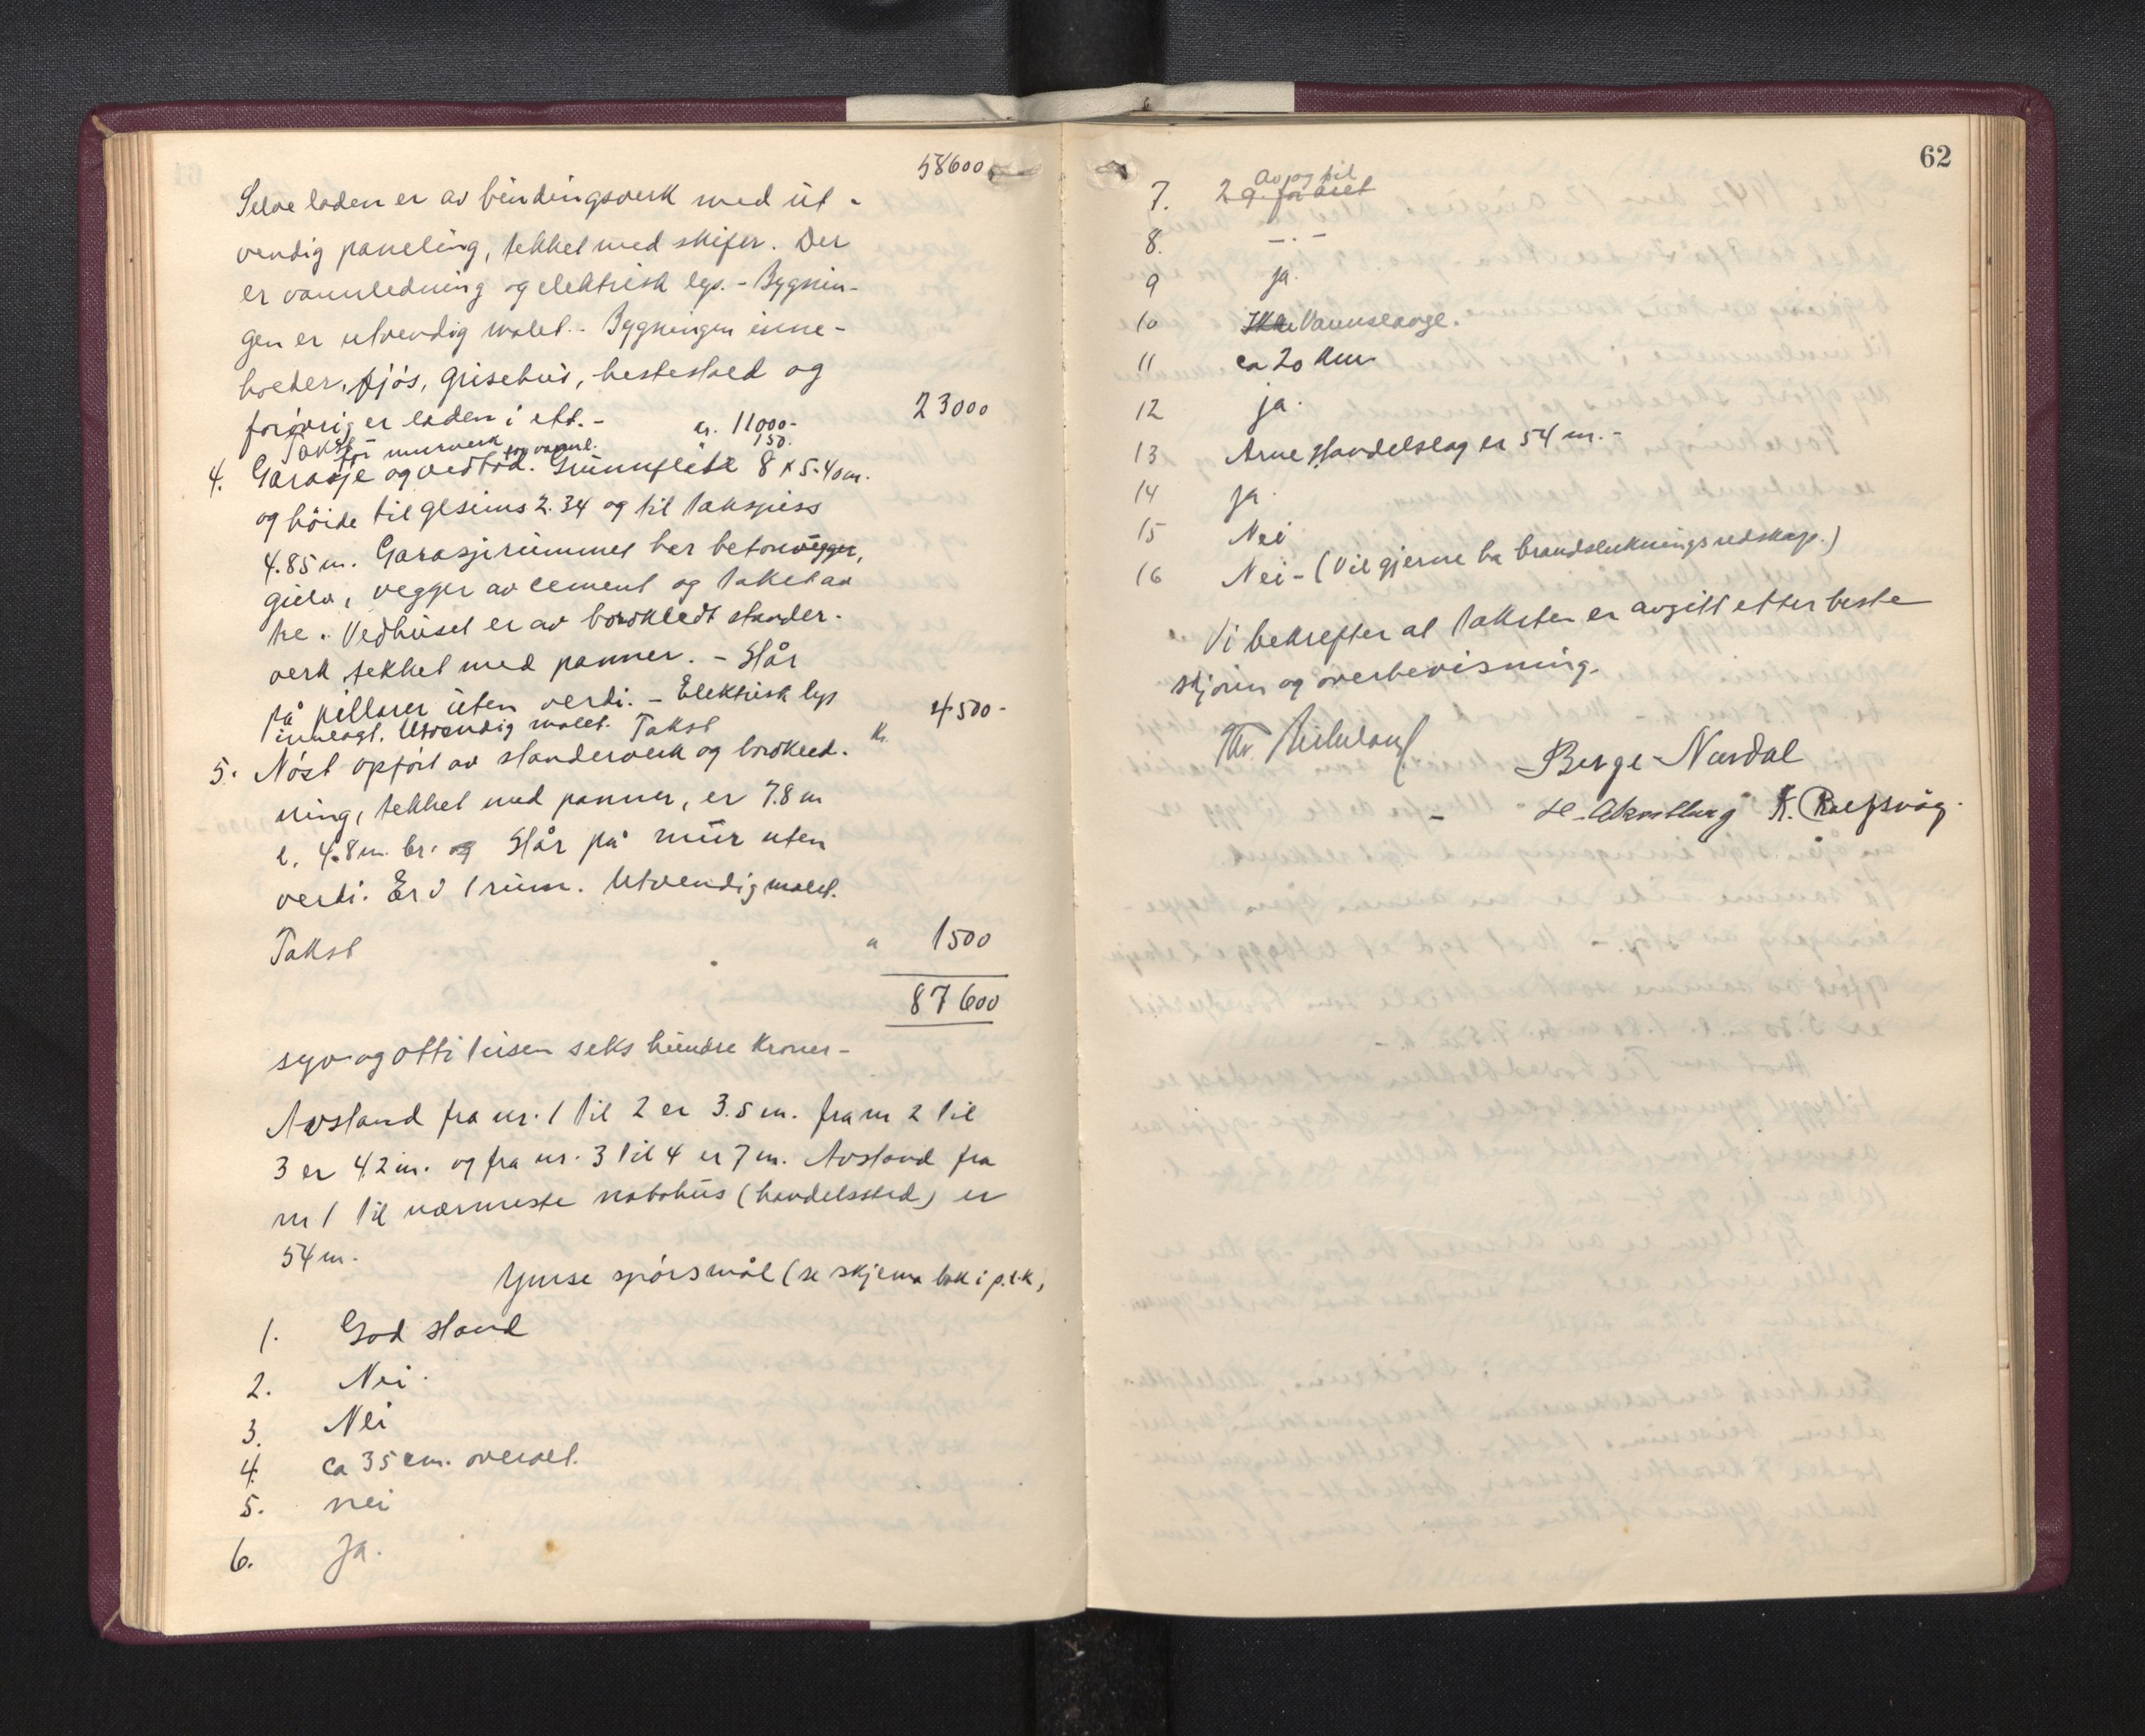 58600
Selve laden er av bindingsverk med ut-
vendig paneling, tekket med skifer. Der
er vannledning og elektrisk lys. - Bygnin-
gen er utvendig malet. - Bygningen inne-
holder, fjøs, grisehus, hestestald og
forøvrig er laden i ett. - kr. 11000- 23000
Takst for murverk og vannl. " 150.
4. Garasje og vedbod. Grunnflate 8 x 5.40 m.
og høide til gesims 2.34 og til takspiss
4.85 m. Garasjerummet har betonvegger,
gulv, vegger av cement og taket av
tre. Vedhuset er av bordkledt stander-
verk tekket med panner. - Står
på pillarer uten verdi. - Elektrisk lys
innlagt. Utvendig malet. Takst kr. 4500-
5. Nøst opført av standerverk og bordkled-
ning, tekket med panner, er 7.8 m
l. 4.8 m. br. og Står på mur uten
verdi. Er i 1 rum. Utvendig malet.
Takst " 1500
87600
syv og otti tusen seks hundre kroner-
Avstand fra nr. 1 til 2 er 3.5 m. fra nr 2 til
3 er 42 m. og fra nr. 3 til 4 er 7 m. Avstand fra
nr 1 til nærmeste nabohus (handelssted) er
54 m.
Ymse spørsmål (se skjema bak i
1. God stand
2. Nei.
3. Nei
4. ca 35 cm. overalt.
5. nei
6. Ja.
62
Av og til
7. 2 g. for året
8. -.-
9 ja.
10 Ikke Vannslange.
11 ca 20 km
12 ja.
13 Arne Handelslag er 54 m. -
14 ja.
15 Nei
16 Nei - (Vil gjerne ha brandslukningsredskap.)
Vi bekrefter at taksten er avgitt etter beste
skjønn og overbevisning.
Berge Nardal
K. Rolfsvåg.